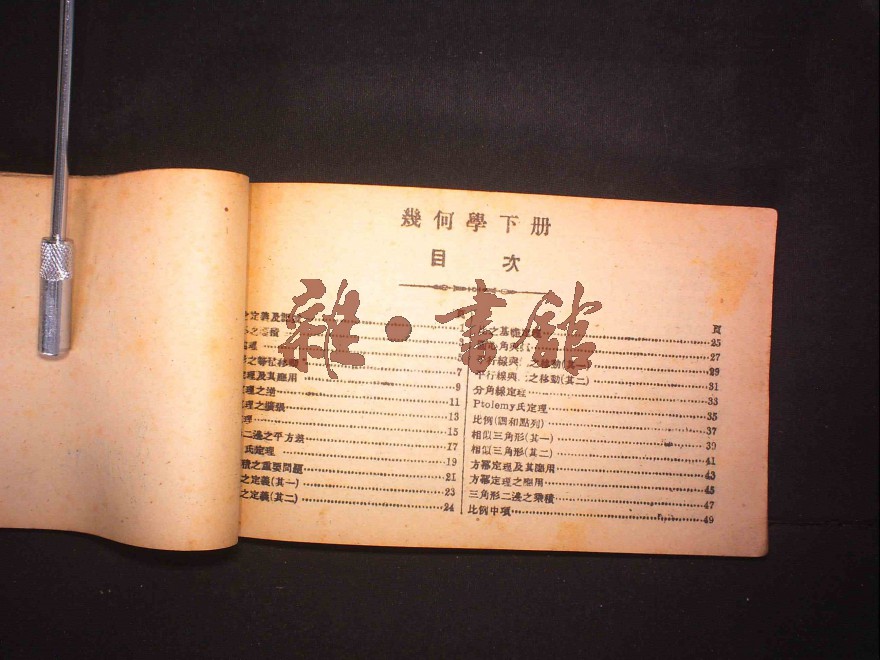 幾何學下册
目次
頁
之定義及
7
理及其應用 9
理之逆 11
理之擴張 13
理 15
二邊之平方差 17
氏定理 19
積之重要問題 21
之定義(其一) 23
之定義(其二) 24
頁
之基礎定理 25
角與 27
平行線與 之移動(其一) 29
平行線與 之移動(其二) 31
分角線定理 33
Ptolemy氏定理 35
比例(調和點列) 37
相似三角形(其一) 39
相似三角形(其二) 41
方冪定理及其應用 43
方冪定理之應用 45
三角形二邊之乘積 47
比例中項 49
雜·書館